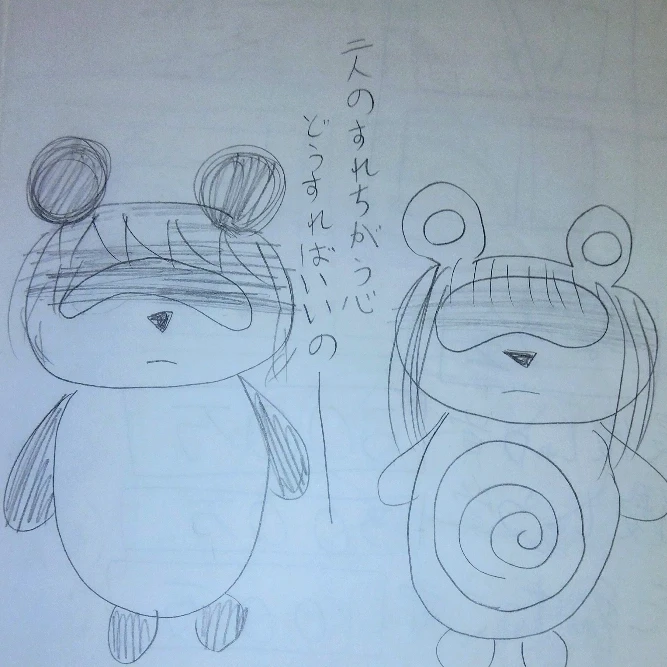 二人のすれちがう心
どうすればいいの―